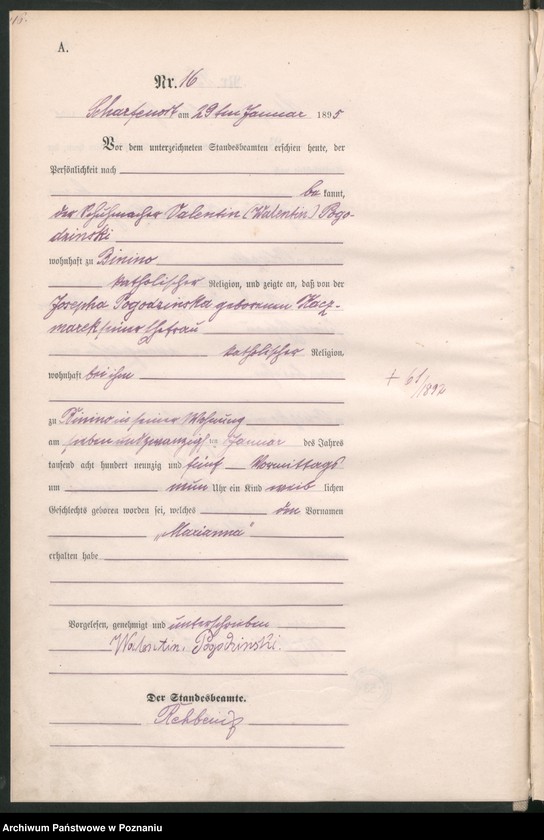 A.
Nr. 16
Scharfenort am 29ten Januar 1895
Vor dem unterzeichneten Standesbeamten erschien heute, der
Persönlichkeit nach
be kannt,
der Schuhmacher Valentin (Walentin) Pogo-
dzinski
wohnhaft zu Binino
katholischer Religion, und zeigte an, daß von der
Josepha Pogodzinska geborenen Kacz-
marek seiner Ehefrau
katholischer Religion,
wohnhaft bei ihm
zu Binino in seiner Wohnung
am sieben und zwanzigsten Januar des Jahres
tausend acht hundert neunzig und fünf Vormittags
um neun Uhr ein Kind weib lichen
Geschlechts geboren worden sei, welches den Vornamen
„Marianna"
erhalten habe
Vorgelesen, genehmigt und unterschrieben
Walentin Pogodzinski.
Der Standesbeamte.
Archiwum Państwowe w Poznaniu